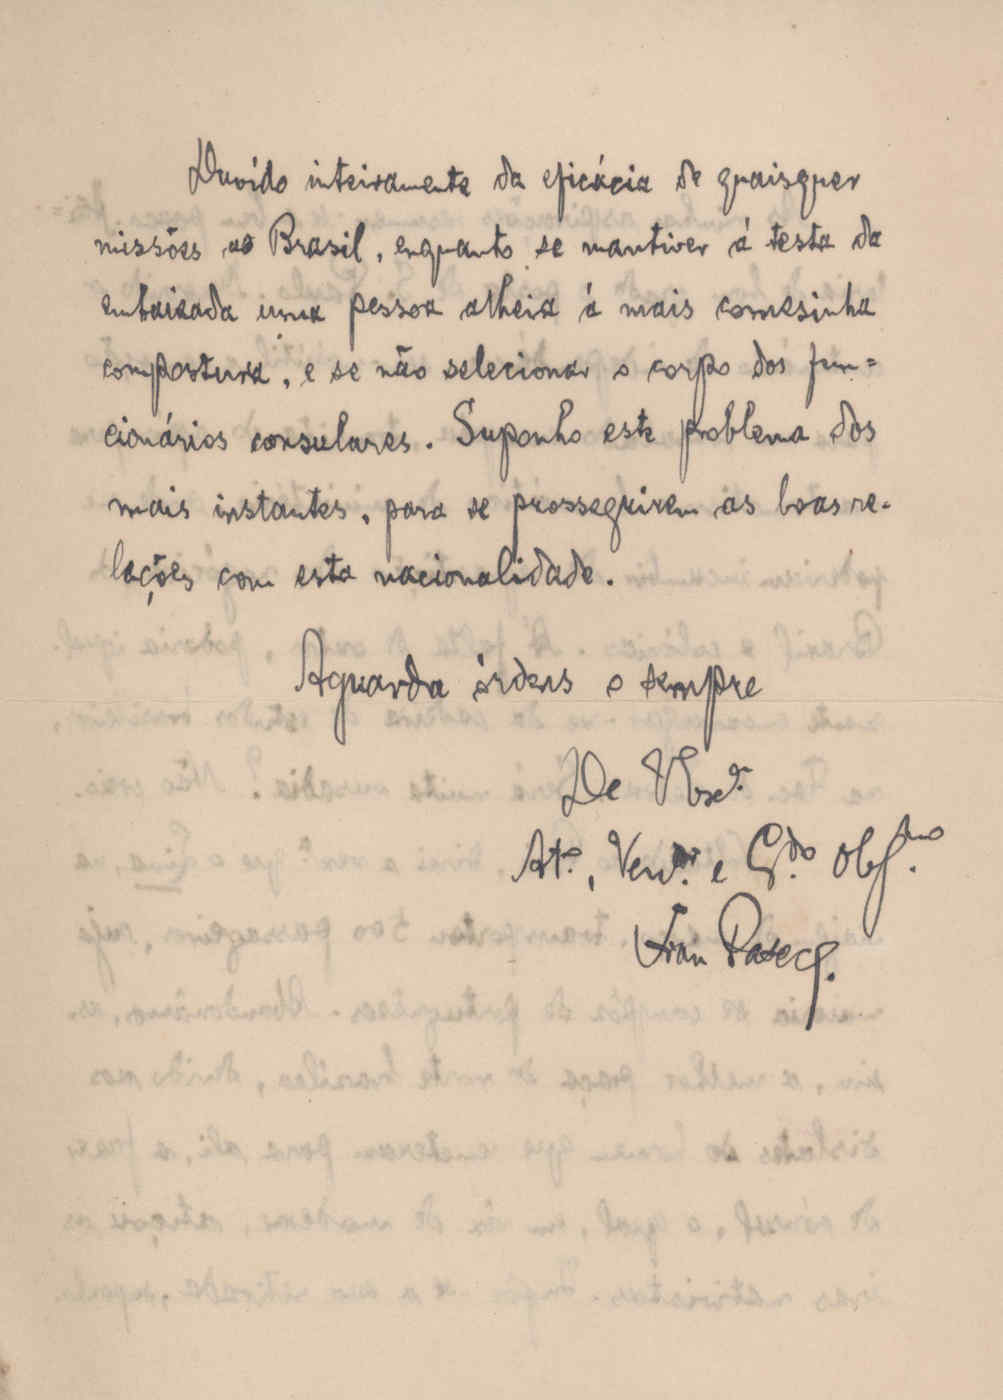 Duvído inteiramente da eficácia de quaisquer
missões ao Brasil, enquanto se mantiver á testa da
embaixada uma pessoa alheia á mais comesinha
compostura, e se não selecionar o corpo dos fun=
cionários consulares. Suponho este problema dos
mais instantes, para se prosseguirem as boas re-
lações com esta nacionalidade.
Aguarda órdens o sempre
De V. Exª.
Atº., Venᵒʳ. e Gᵈᵒ. Obfᵐᵒ.
Fran Paxeco.